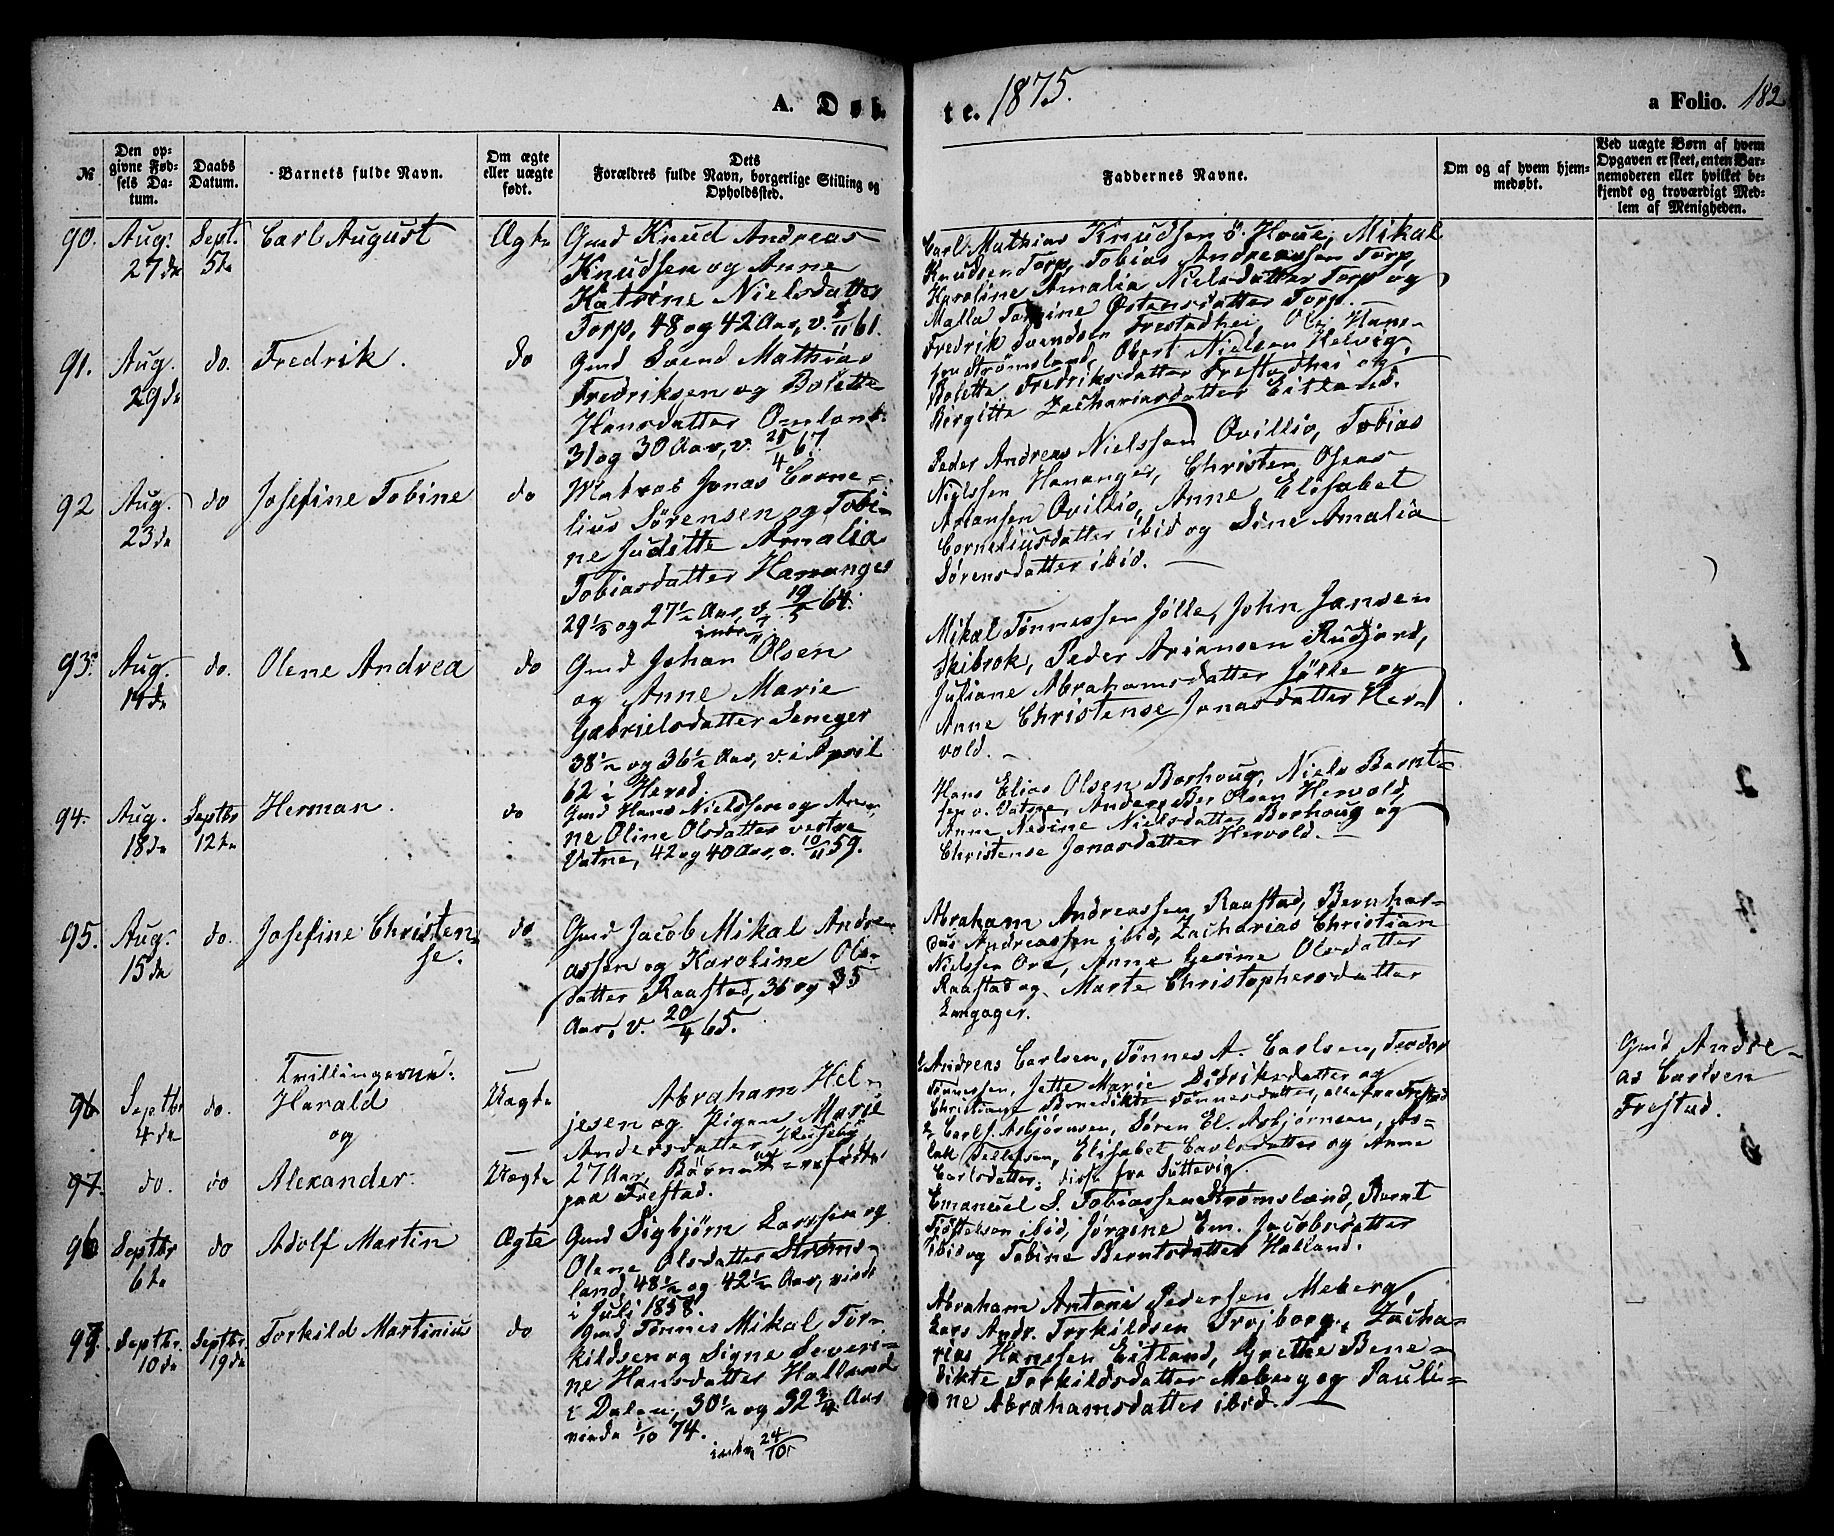 A. Døb-
te. 1875.
a Folio. 182
№
Den op-
givne Fød-
sels Da-
tum.
Daabs
Datum.
Barnets fulde Navn.
Om ægte
eller uægte
født.
Dets
Forældres fulde Navn, borgerlige Stilling og
Opholdssted.
Faddernes Navne.
Om og af hvem hjem-
medøbt.
Ved uægte Børn af hvem
Opgaven er skeet, enten Bar-
nemoderen eller hvilket be-
kjendt og troværdigt Med-
lem af Menigheden.
90.
Aug.
27de
Sept.
5te
Carl August
Ægte
Gmd Knud Andreas
Knudsen og Anne
Katrine Nielsdatter
Torp, 48 og 42 Aar, v. 5/11 61.
Carl Mathias Knudsen ö. Houe, Mikal
Knudsen Torp, Tobias Andreassen Torp,
Karoline Amalia Nielsdatter Torp og
Malla Tomine Østensdatter Torp.
91.
Aug.
29de
do.
Fredrik.
do
Gmd Svend Mathias
Fredriksen og Bolette
Hansdatter Omland
31 og 30 Aar, v. 25/4 67.
Fredrik Svendsen Frestadhei, Ole Han-
sen Strømsland, Obert Nielsen Helvig,
Bolette Fredriksdatter Frestadhei og
Birgitte Zachariasdatter Eitland.
92
Aug.
23de
do
Josefine Tobine
do
Matros Jonas Corne-
lius Sörensen og Tobi-
ne Juditte Amalia
Tobiasdatter Hananger
29 1/3 og 27 1/2 Aar, v. 19/5 64.
Peder Andreas Nielssen Qvillio, Tobias
Nielssen Hananger, Christen Oseas
Ariansen Qvillio, Anne Elisabet
Corneliusdatter ibid og Sine Amalia
Sörensdatter ibid.
93.
Aug.
14de
do.
Olene Andrea
do
Gmd Johan Olsen
og Anne Marie
Gabrielsdatter Seneger
38 1/2 og 36 1/2 Aar, v. i April
62 i Herad.
Mikal Tönnessen Jölle, John Jansen
Skibrok, Peder Ariansen Rudjord,
Juliane Abrahamsdatter Jölle og
Anne Christense Jonasdatter Her-
vold.
94.
Aug.
18de
Septbr
12te
Herman.
do
Gmd Hans Nielssen og An-
ne Oline Olsdatter vestre
Vatne, 42 og 40 Aar, v. 10/11 59.
Hans Elias Olsen Borhoug, Niels Bernt-
sen v. Vatne, Anders Ber. Olsen Hervold,
Anne Nedine Nielsdatter Borhoug og
Christense Jonasdatter Hervold.
95.
Aug.
15de
do.
Josefine Christen-
se.
do
Gmd Jacob Mikal Andre-
assen og Karoline Ols-
datter Raastad, 36 og 35
Aar, v. 20/4 65.
Abraham Andreassen Raastad, Bernhar-
dus Andreassen ibid, Zacharias Christian
Nielssen Ore, Anne Gesine Olsdatter
Raastad og Marte Christophersdatter
Langager.
96
Septbr
4de
do.
Tvillingerne:
Harald
og
Uægte
Abraham Hel-
jesen og Pigen Marie
Andersdatter
27 Aar, Börnene ere födte
paa Frestad.
Andreas Carlsen, Tönnes A. Carlsen, Teodor
Tönnessen, Jette Marie Didriksdatter og
Christiane Benedikte Tönnesdatter, alle fra Frestad
Carl Asbjörnsen, Sören El. Asbjörnsen, As-
lak Tellefsen, Elisabet Carlsdatter og Anne
Carlsdatter, disse fra Juttevig.
Gmd Andre-
as Carlsen
Frestad.
97.
do.
do
Alexander.
Uægte
96
Septbr
6te
do
Adolf Martin
Ægte
Gmd Sigbjörn Larssen og
Olene Olsdatter Strøms-
land, 48 1/2 og 42 1/2 Aar, viede
i Juli 1858.
Emanuel S. Tobiassen Strømsland, Bernt
ibid, Jörgine Em. Jacobsdatter
ibid og Tobine Berntsdatter Halland.
97.
Septbr.
10de
Septbr.
19de
Torkild Martinius
do
Gmd Tönnes Mikal Tor-
kildsen og Signe Severi-
ne Hansdatter Halland
i Dalen, 30 1/2 og 32 3/4 Aar
viede 1/10 74.
Abraham Antoni Pedersen Meberg,
Lars Andr. Torkildsen Trojborg, Zacha-
rias Hanssen Eitland, Grethe Bene-
dikte Torkildsdatter Meberg og Pauli-
ne Abrahamsdatter ibid.